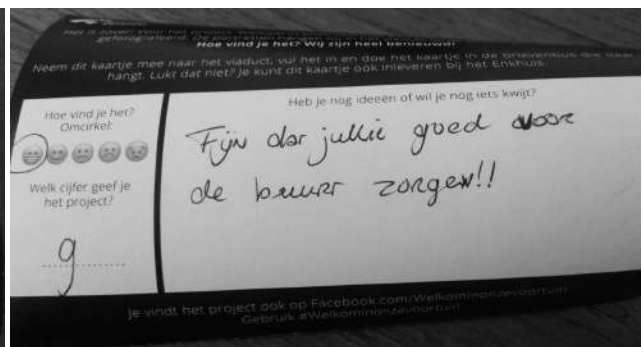 Het is zover! Voor het project
gefotografeerd. De portretten hangen
Hoe vind je het? Wij zijn heel benieuwd!
Neem dit kaartje mee naar het viaduct, vul het in en doe het kaartje in de brievenbus die daar
hangt. Lukt dat niet? Je kunt dit kaartje ook inleveren bij het Enkhuis.
Hoe vind je het?
Omcirkel:
Welk cijfer geef je
het project?
9
Heb je nog ideeën of wil je nog iets kwijt?
Fijn dat jullie goed voor
de buurt zorgen!!
Je vindt het project ook op Facebook.com/Welkominonzevoortuin
Gebruik #Welkominonzevoortuin